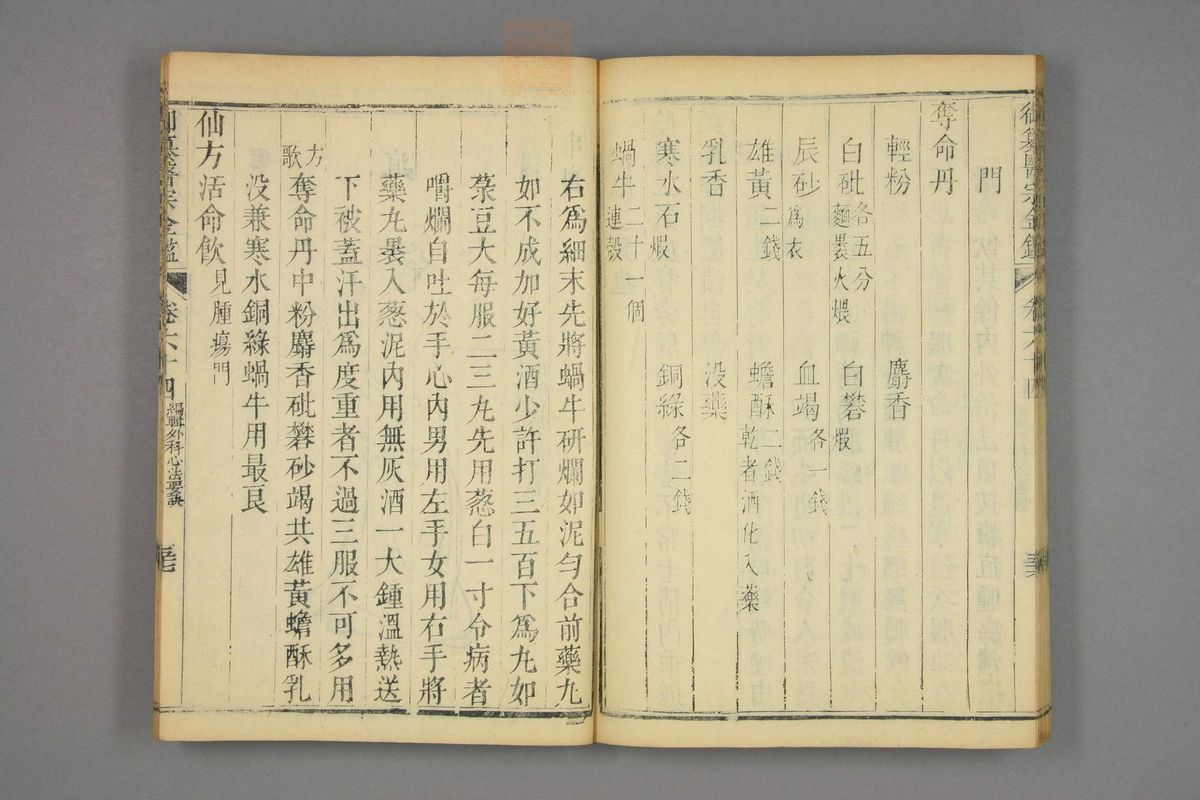 御纂醫宗金鑑 卷六十四
門
奪命丹
輕粉 麝香
白砒各五分麵裹火煨 白礬煆
辰砂爲衣 血竭各一錢
雄黃二錢 蟾酥二錢乾者酒化入藥
乳香 没藥
寒水石煆 銅綠各二錢
蝸牛二十一個連殼
右爲細末先將蝸牛硏爛如泥勻合前藥丸
如不成加好黃酒少許打三五百下爲丸如
菉豆大每服二三丸先用葱白一寸令病者
嚼爛自吐於手心內男用左手女用右手將
藥丸裹入葱泥內用無灰酒一大鍾溫熱送
下被蓋汗出爲度重者不過三服不可多用
方歌 奪命丹中粉麝香砒礬砂竭共雄黃蟾酥乳
没兼寒水銅綠蝸牛用最良
仙方活命飲見腫瘍門
御纂醫宗金鑑 卷六十四 編輯外科心法要訣